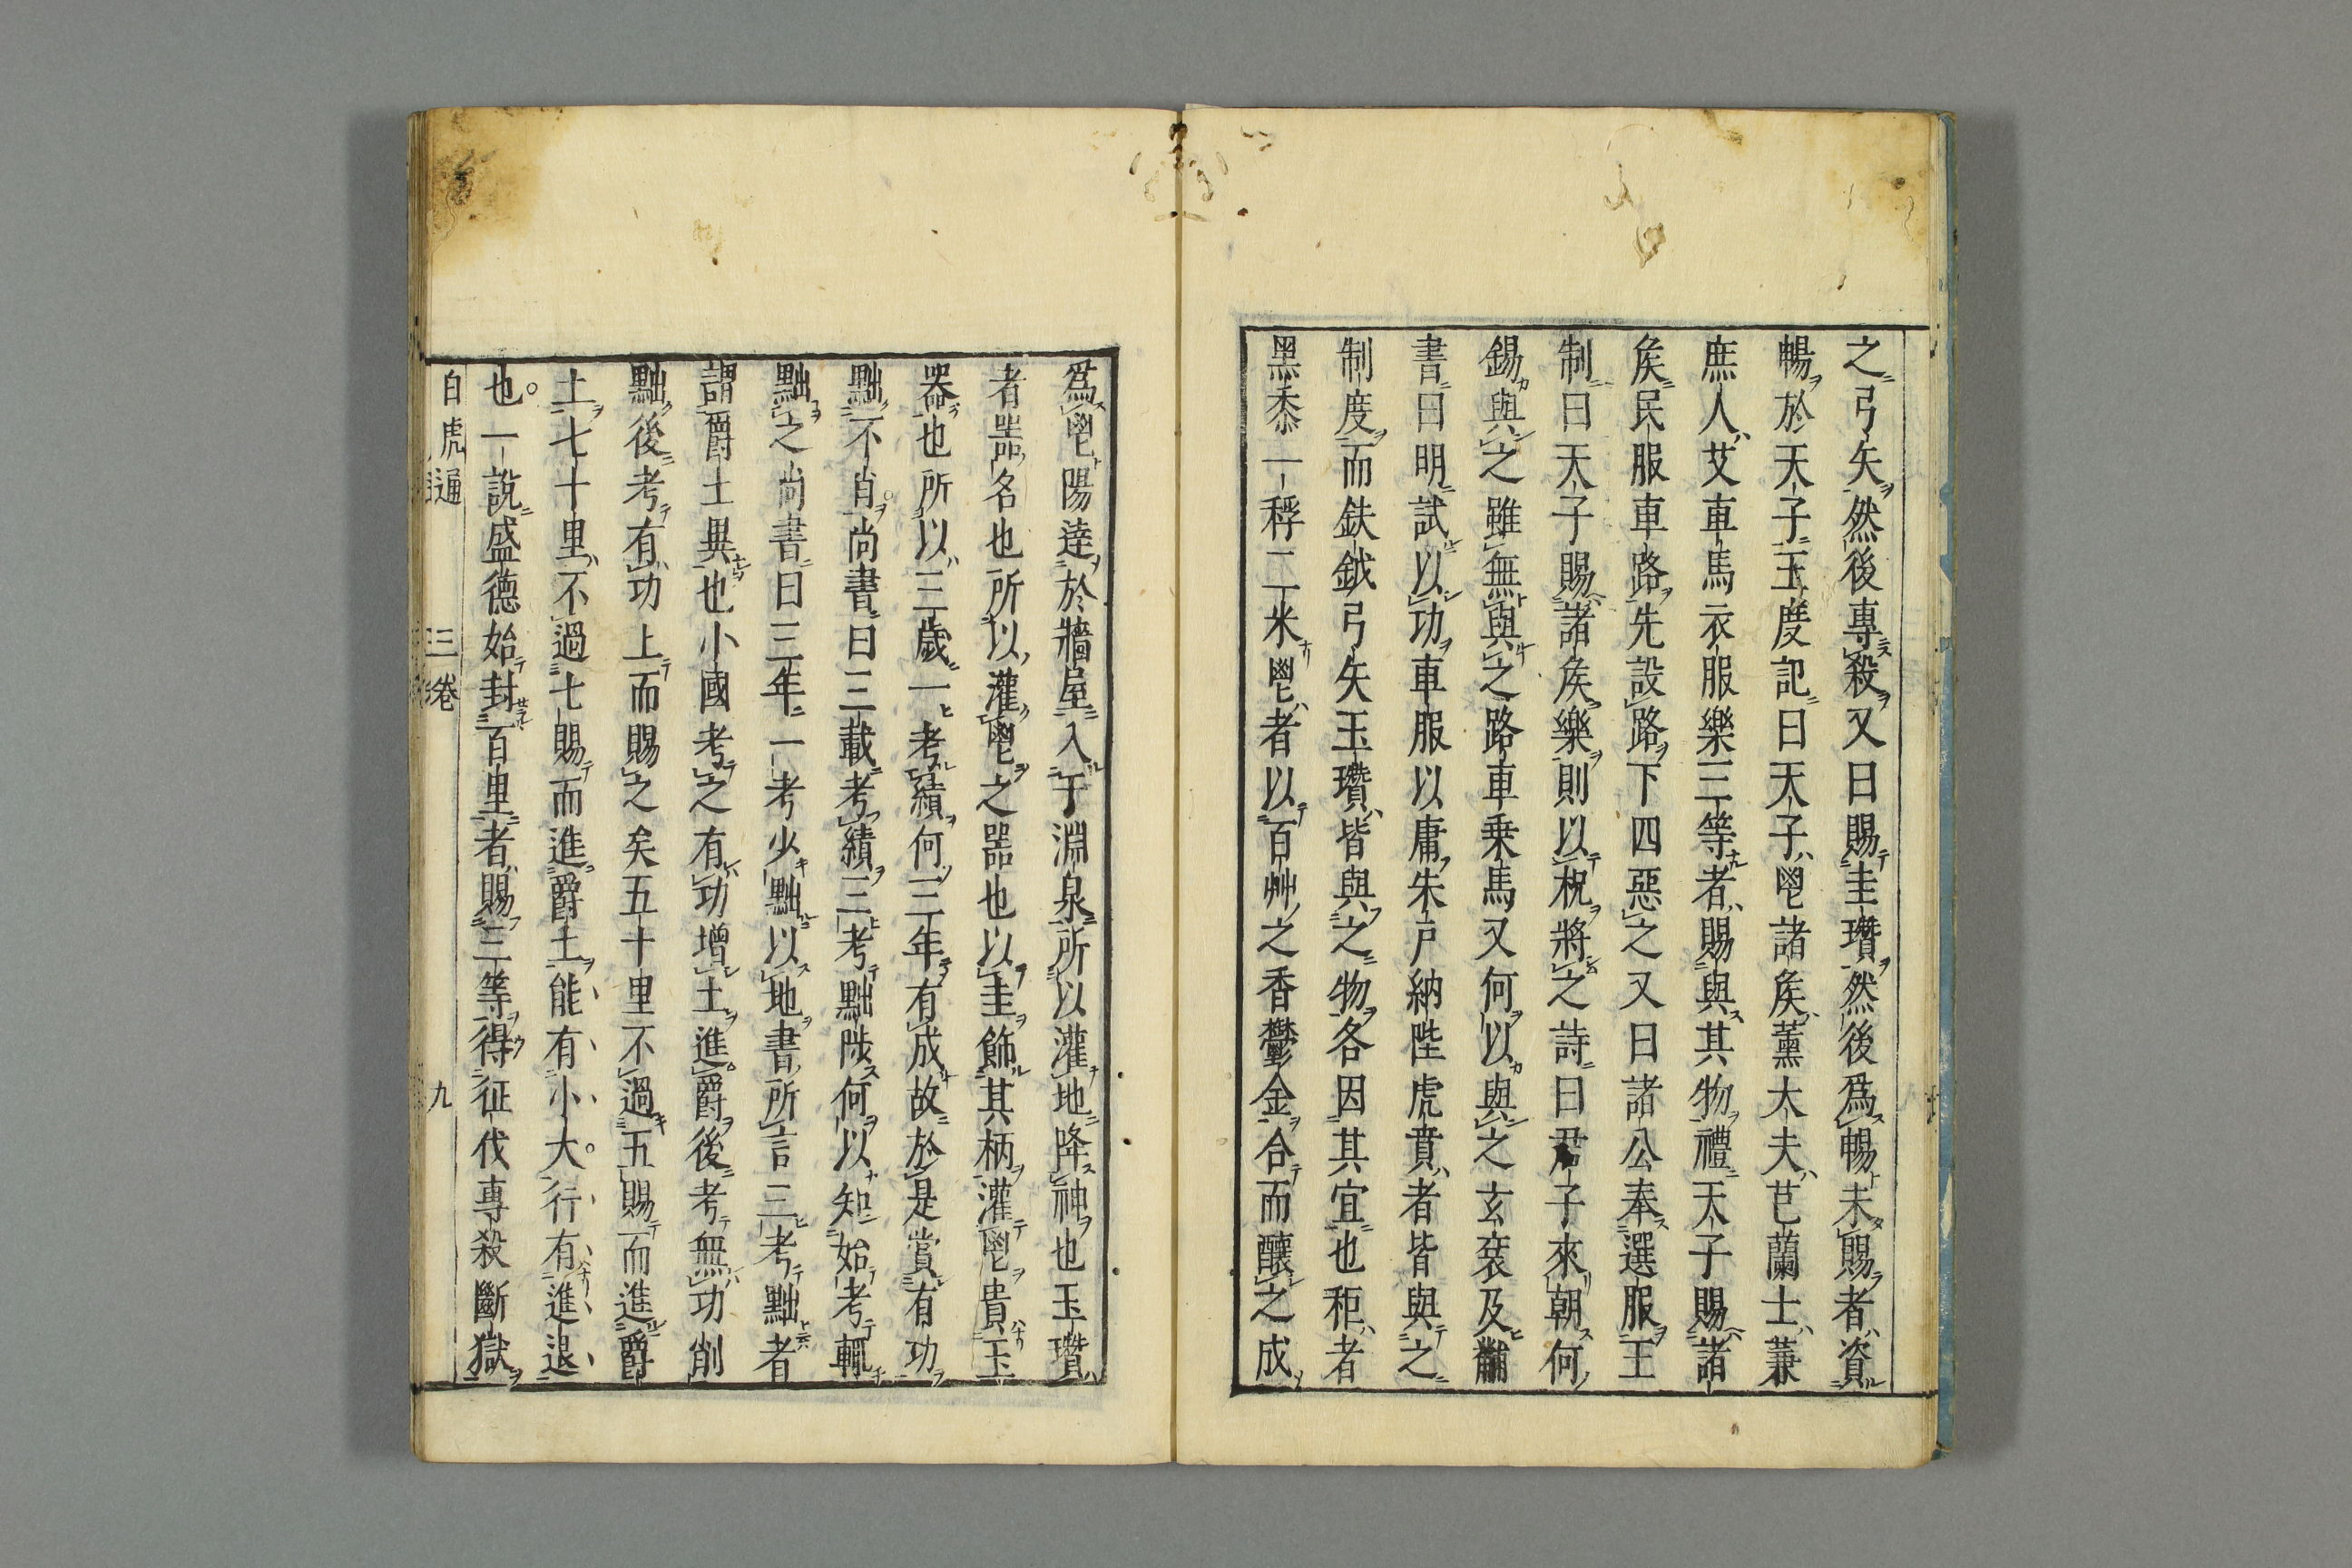 之弓矢然後專殺又曰賜圭瓚然後爲暢未賜者資
暢於天子王度記曰天子鬯諸矦薰大夫芑蘭士蒹
庶人艾車馬衣服樂三等者賜與其物禮天子賜諸
矦民服車路先設路下四惡之又曰諸公奉選服王
制曰天子賜諸矦樂則以柷將之詩曰君子來朝何
錫與之雖無與之路車乗馬又何以與之玄衮及黼
書曰明試以功車服以庸朱户納陛虎賁者皆與之
制度而鈇鉞弓矢玉瓚皆與之物各因其宜也秬者
黑黍一稃二米鬯者以百艸之香鬱金合而釀之成
爲鬯陽逹於牆屋入于淵泉所以灌地降神也玉瓚
者噐名也所以灌鬯之噐也以圭飾其柄灌鬯貴玉
器也所以三歲一考績何三年有成故於是賞有功
黜不肖尚書曰三載考績三考黜陟何以知始考輒
黜之尚書曰三年一考少黜以地書所言三考黜者
謂爵土異也小國考之有功增土進爵後考無功削
黜後考有功上而賜之矣五十里不過五賜而進爵
土七十里不過七賜而進爵土能有小大行有進退
也一說盛德始封百里者賜三等得征伐專殺斷獄
白虎通　三卷　九